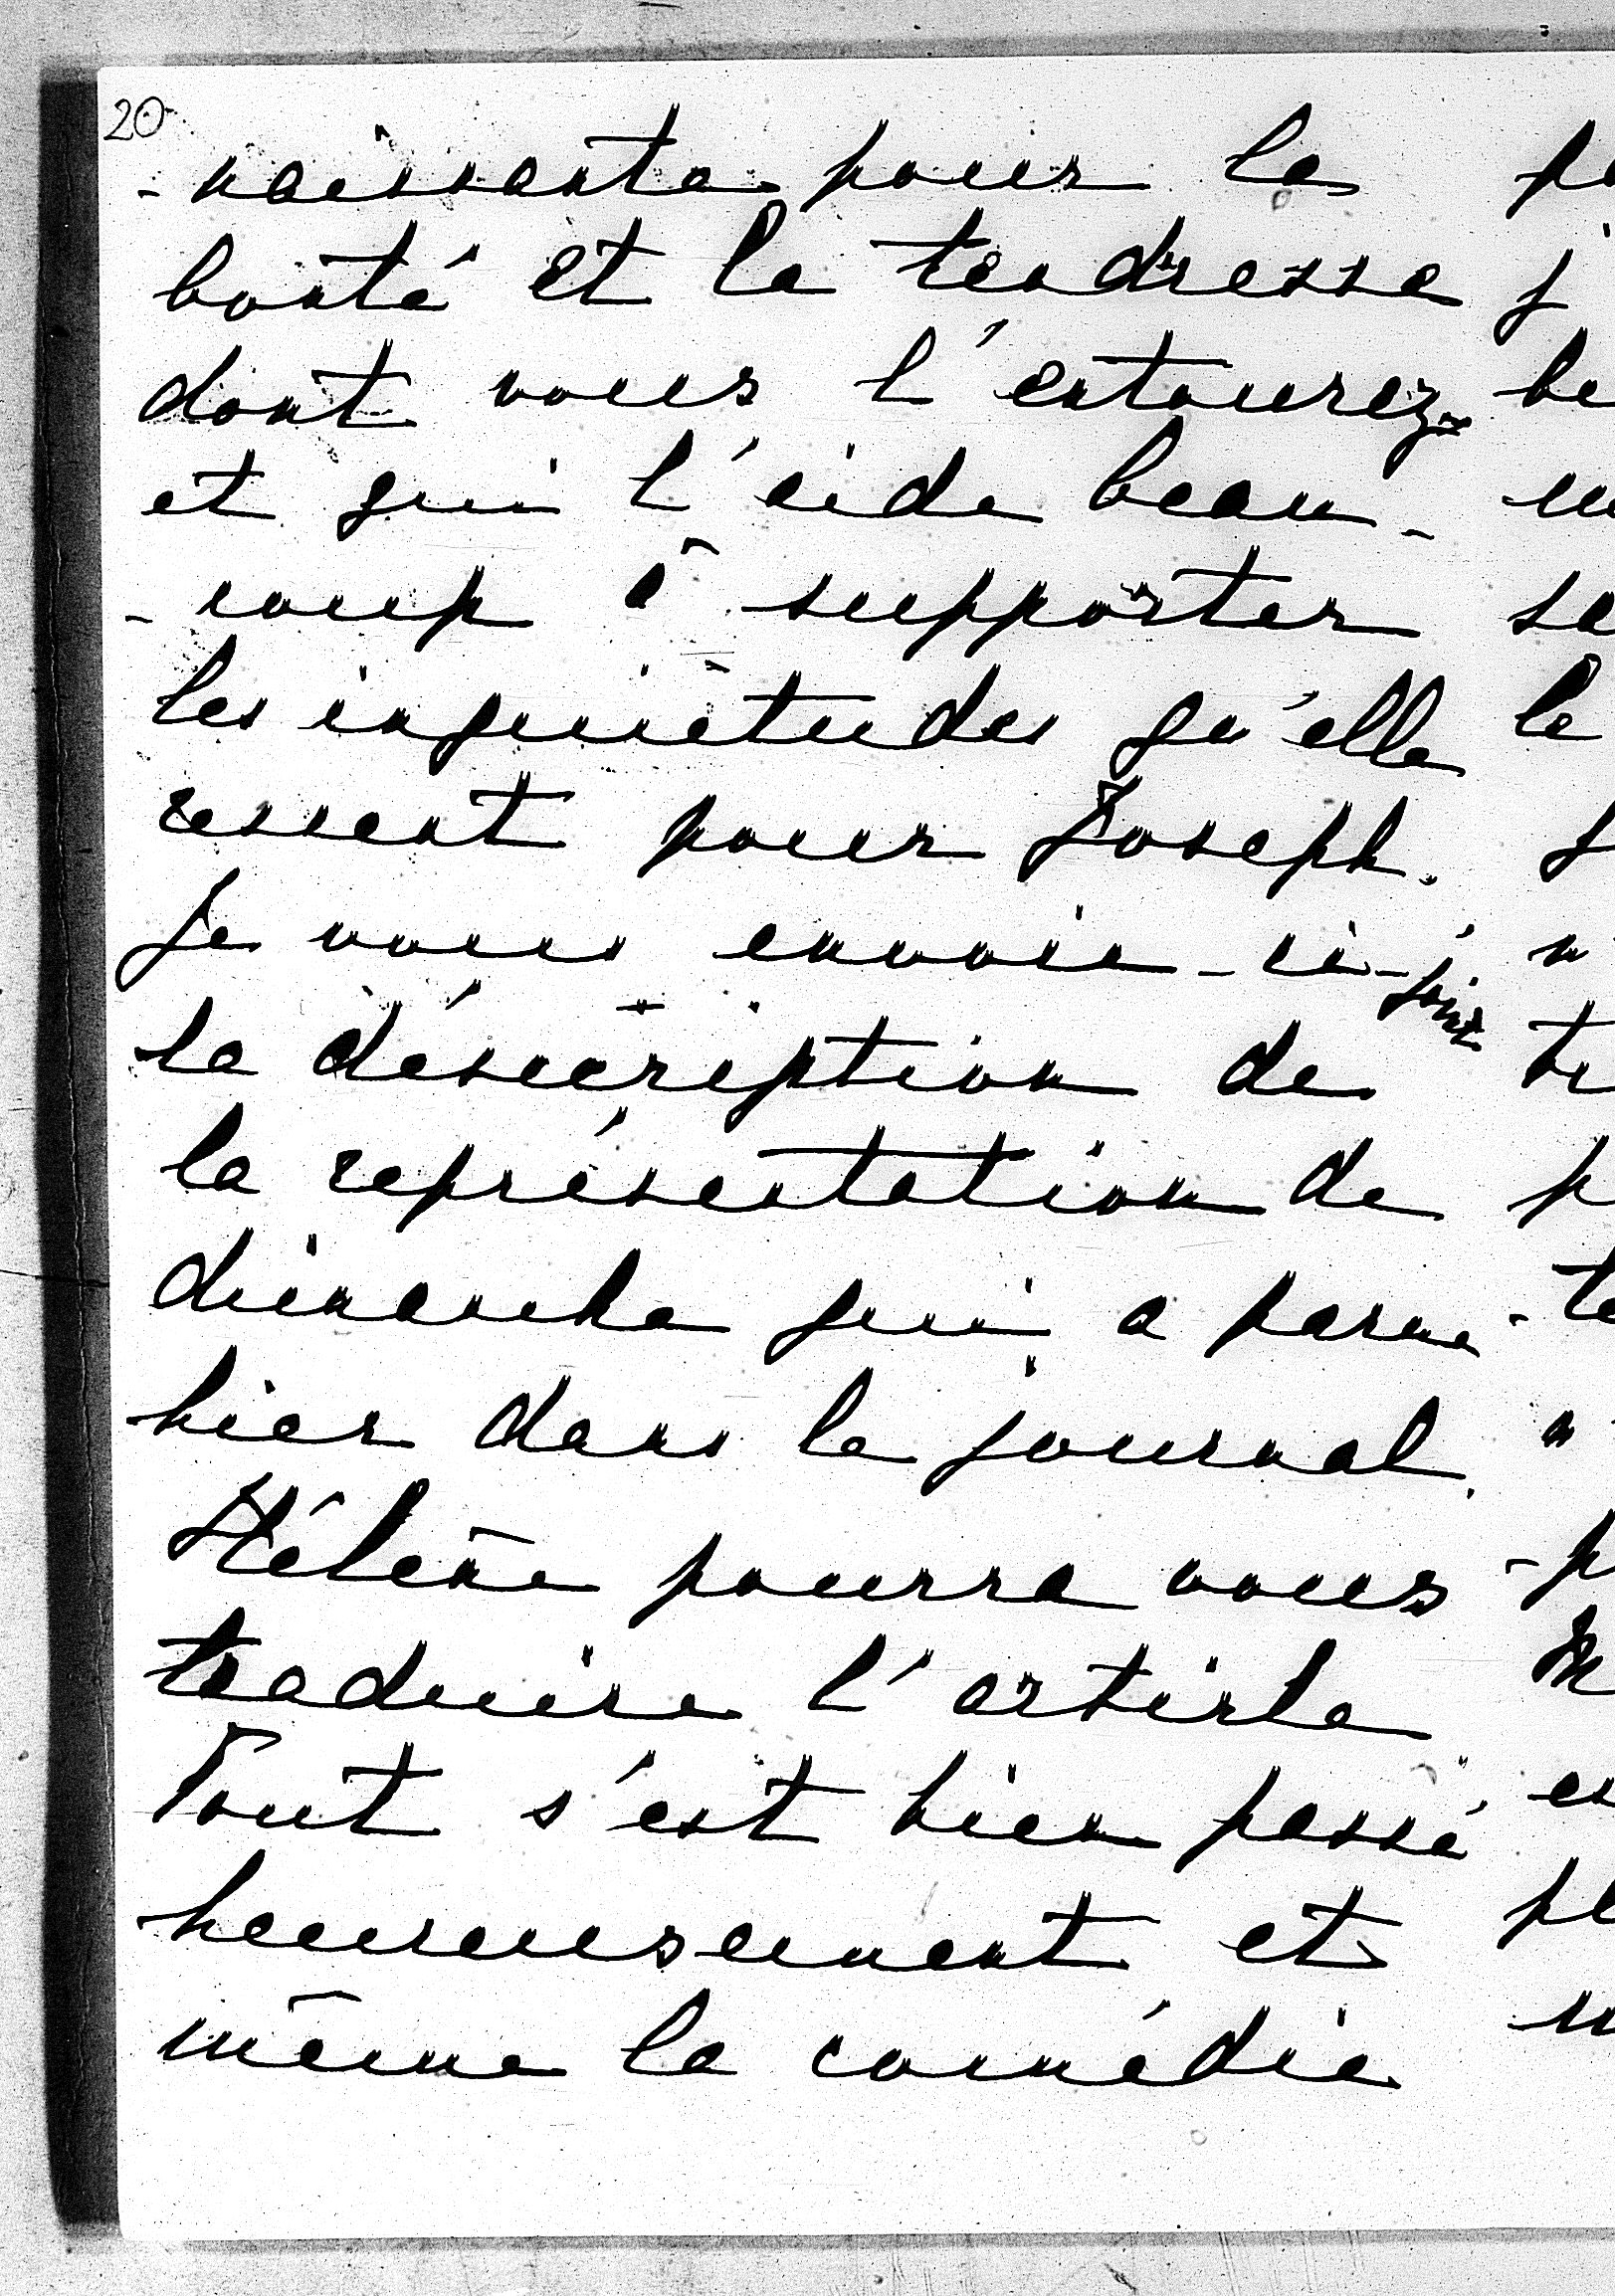 20
-naissante pour la
bonté et la tendresse
dont vous l'entourez
et qui l'aide beau-
-coup à supporter
les inquiétudes qu'elle
ressent pour Joseph.
Je vous envoie-ci-joint
la déscription de
la représentation de
dimanche qui a paru
hier dans le journal.
Hélène pourra vous
traduire l'article
Tout s'est bien passé
heureusement et
même la comédie